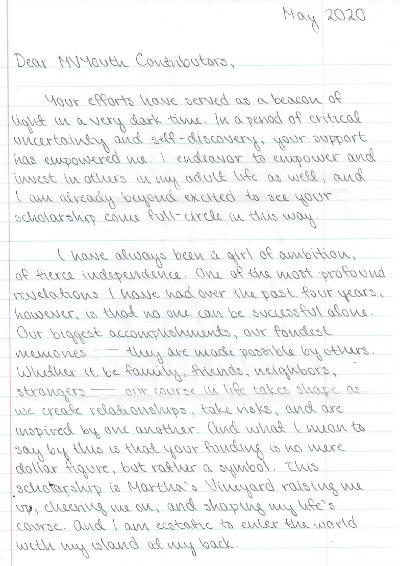 May 2020
Dear MVYouth Contributors,
Your efforts have served as a beacon of
light in a very dark time. in a period of critical
uncertainty and self-discovery, your support
has empowered me. i endeavor to empower and
invest in others in my adult life as well, and
I am already beyond excited to see your
scholarship come full-circle in this way.
I have always been a girl of ambition,
of fierce independence. One of the most profound
revelations I have had over the past four years,
however, is that no one can be successful alone.
Our biggest accomplishments, our fondest
memories — they are made possible by others.
Whether it be family, friends, neighbors,
strangers — our course in life takes shape as
we create relationships, take risks, and are
inspired by one another. And what I mean to
say by this is that your funding is no mere
dollar figure, but rather a symbol. This
scholarship is Martha's Vineyard raising me
up, cheering me on, and shaping my life's
course. And i am ecstatic to enter the world
with my island at my back.